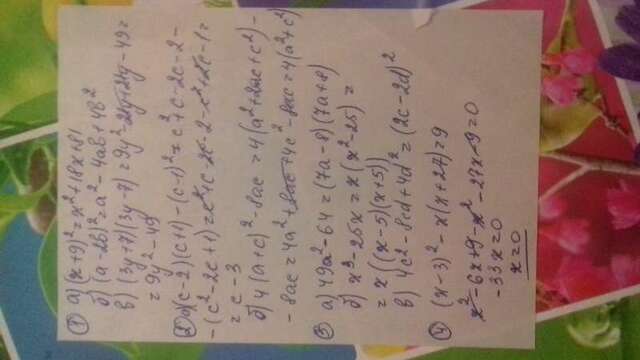 1 а) (x+9)² = x²+18x+81
б) (a-2b)² = a²-4ab+4b²
в) (3y+7)(3y-7) = 9y²-21y+21y-49 =
= 9y²-49
2 а) (c-2)(c+1)-(c-1)² = c²+c-2c-2-
-(c²-2c+1) = c²+c-2c-2-c²+2c-1 =
= c-3
б) 4(a+c)²-8ac = 4(a²+2ac+c²)-
-8ac = 4a²+8ac+4c²-8ac = 4(a²+c²)
3 а) 49a²-64 = (7a-8)(7a+8)
б) x³-25x = x(x²-25) =
= x((x-5)(x+5))
в) 4c²-8cd+4d² = (2c-2d)²
4 (x-3)²-x(x+27)=9
x²-6x+9-x²-27x-9=0
-33x=0
x=0